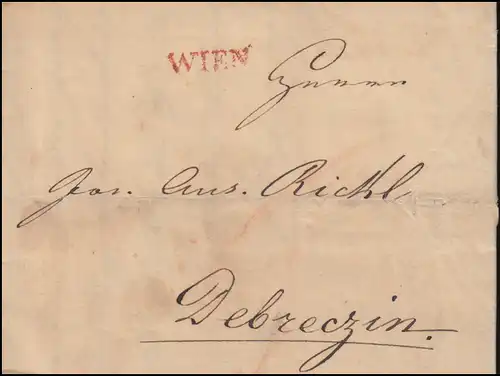 WIEN
Herrn
Jos. Ans. Rickl
Debreczin.